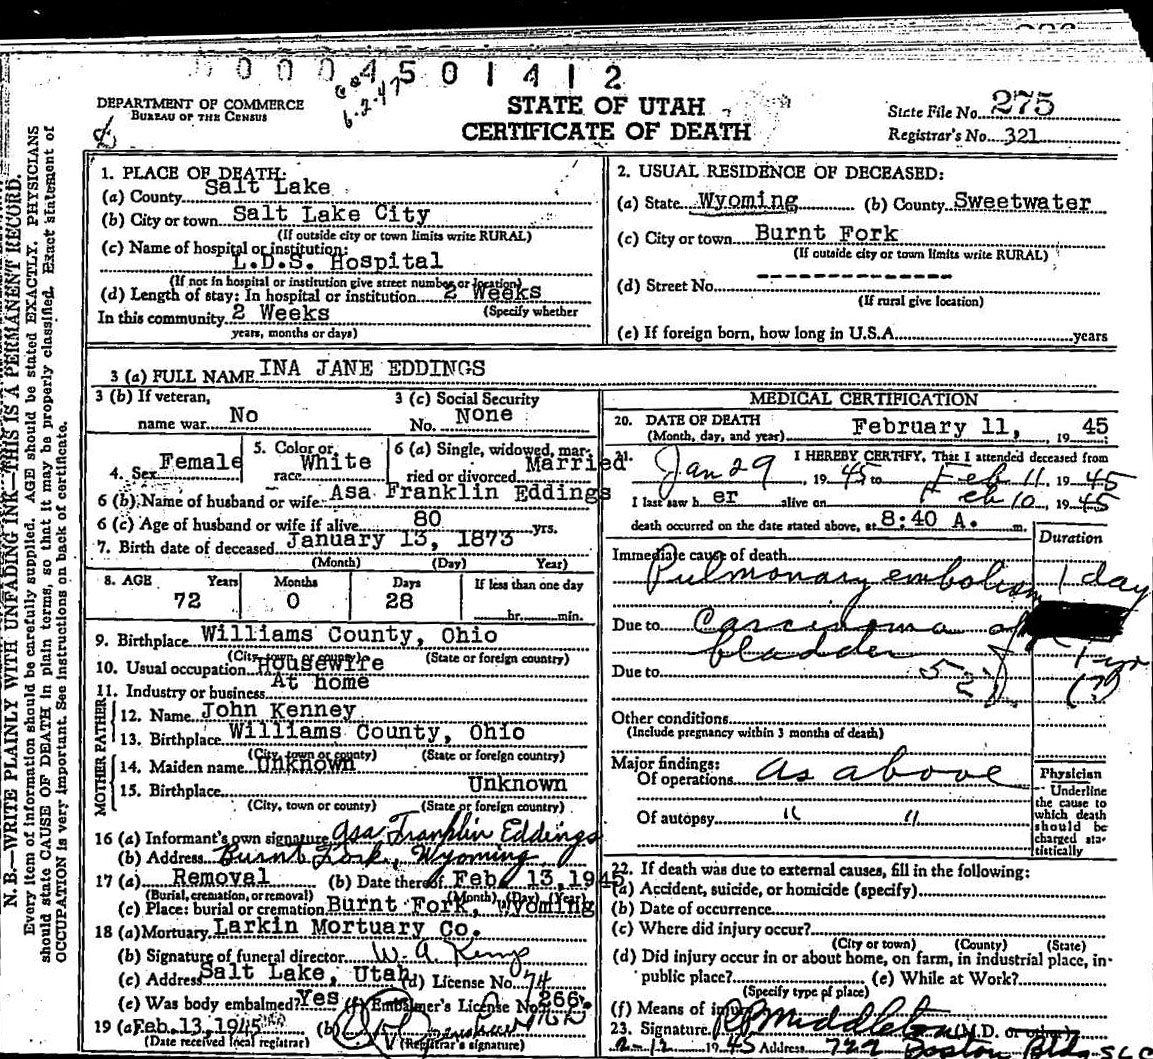 0 0 0 4 5 0 1 4 1 2
6-2-47
DEPARTMENT OF COMMERCE
BUREAU OF THE CENSUS
STATE OF UTAH
CERTIFICATE OF DEATH
State File No. 275
Registrar's No. 321
N. B.—WRITE PLAINLY WITH UNFADING INK—THIS IS A PERMANENT RECORD.
Every item of information should be carefully supplied. AGE should be stated EXACTLY. PHYSICIANS
should state CAUSE OF DEATH in plain terms, so that it may be properly classified. Exact statement of
OCCUPATION is very important. See instructions on back of certificate.
1. PLACE OF DEATH:
(a) County Salt Lake
(b) City or town Salt Lake City
(If outside city or town limits write RURAL)
(c) Name of hospital or institution:
L.D.S. Hospital
(If not in hospital or institution give street number or location)
(d) Length of stay: In hospital or institution 2 Weeks
(Specify whether
In this community 2 Weeks
years, months or days)
2. USUAL RESIDENCE OF DECEASED:
(a) State Wyoming (b) County Sweetwater
(c) City or town Burnt Fork
(If outside city or town limits write RURAL)
(d) Street No. ---------------
(If rural give location)
(e) If foreign born, how long in U.S.A. years
3 (a) FULL NAME INA JANE EDDINGS
3 (b) If veteran,
name war No
3 (c) Social Security
No. None
4. Sex Female
5. Color or
race White
6 (a) Single, widowed, mar-
ried or divorced Married
6 (b) Name of husband or wife Asa Franklin Eddings
6 (c) Age of husband or wife if alive 80 yrs.
7. Birth date of deceased January 13, 1873
(Month) (Day) Year)
8. AGE Years Months Days If less than one day
72 0 28 hr. min.
9. Birthplace Williams County, Ohio
(City, town or county) (State or foreign country)
10. Usual occupation Housewife
11. Industry or business At home
FATHER
12. Name John Kenney
13. Birthplace Williams County, Ohio
(City, town or county) (State or foreign country)
MOTHER
14. Maiden name Unknown
15. Birthplace Unknown
(City, town or county) (State or foreign country)
16 (a) Informant's own signature Asa Franplin Eddings
(b) Address Burnt Fork, Wyoming
17 (a) Removal (b) Date thereof Feb. 13, 1945
(Burial, cremation, or removal) (Month) (Day) (Year)
(c) Place: burial or cremation Burnt Fork, Wyoming
18 (a) Mortuary Larkin Mortuary Co.
(b) Signature of funeral director W. A. Kemp
(c) Address Salt Lake, Utah (d) License No. 74
(e) Was body embalmed? Yes (f) Embalmer's License No. 266
19 (a) Feb. 13, 1945 (b)
(Date received local registrar) (Registrar's signature)
MEDICAL CERTIFICATION
20. DATE OF DEATH
(Month, day, and year) February 11, 19 45
21. I HEREBY CERTIFY, That I attended deceased from
Jan 29, 19 45 to Feb 11, 19 45
I last saw h er alive on Feb 10, 19 45
death occurred on the date stated above, at 8:40 A. m.
Duration
Immediate cause of death
Pulmonary embolism 1 day
Due to Carcinoma of
bladder 1 yr
Due to (?)
52
Other conditions
(Include pregnancy within 3 months of death)
Major findings:
Of operations As above
Of autopsy " "
Physician
Underline
the cause to
which death
should be
charged sta-
tistically
22. If death was due to external causes, fill in the following:
(a) Accident, suicide, or homicide (specify)
(b) Date of occurrence
(c) Where did injury occur?
(City or town) (County) (State)
(d) Did injury occur in or about home, on farm, in industrial place, in-
public place? (e) While at Work?
(Specify type of place)
(f) Means of injury
23. Signature Middleton (M.D. or other)
2-12 19 45 Address 722 Boston Bld. SLC